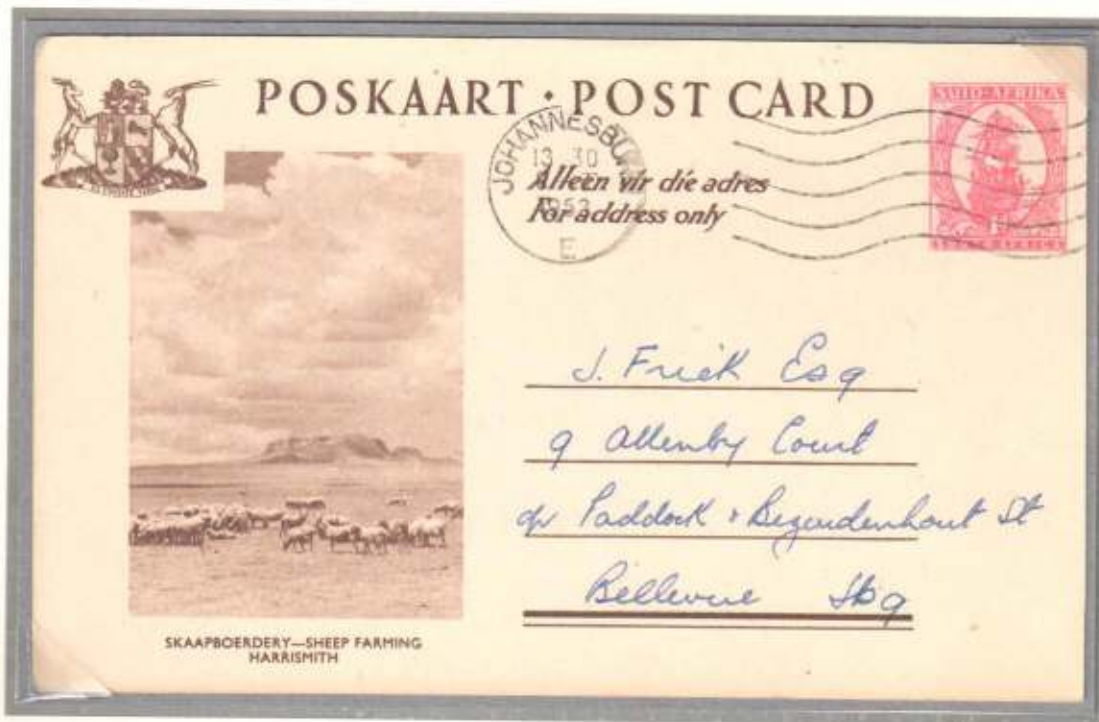 POSKAART · POST CARD
SUID-AFRIKA
JOHANNESBU
13 30
E
Alleen vir die adres
For address only
J. Friek Esq
9 Allenby Court
c/r Paddock & Bezuidenhout St
Bellevue Jbg
SKAAPBOERDERY—SHEEP FARMING
HARRISMITH